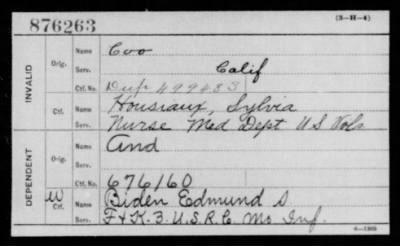 876263 (3-H-4)
INVALID
Orig. Name Coo
Serv. Calif
Ctf. No. Dup 499483
Ctf. Name Housiaux, Sylvia
Serv. Nurse Med Dept U S Vols
DEPENDENT
Orig. Name And
Serv.
Ctf. No. 676160
W Ctf. Name Biden Edmund S.
Serv. F & K-3. U.S.R.C. Mo Inf.